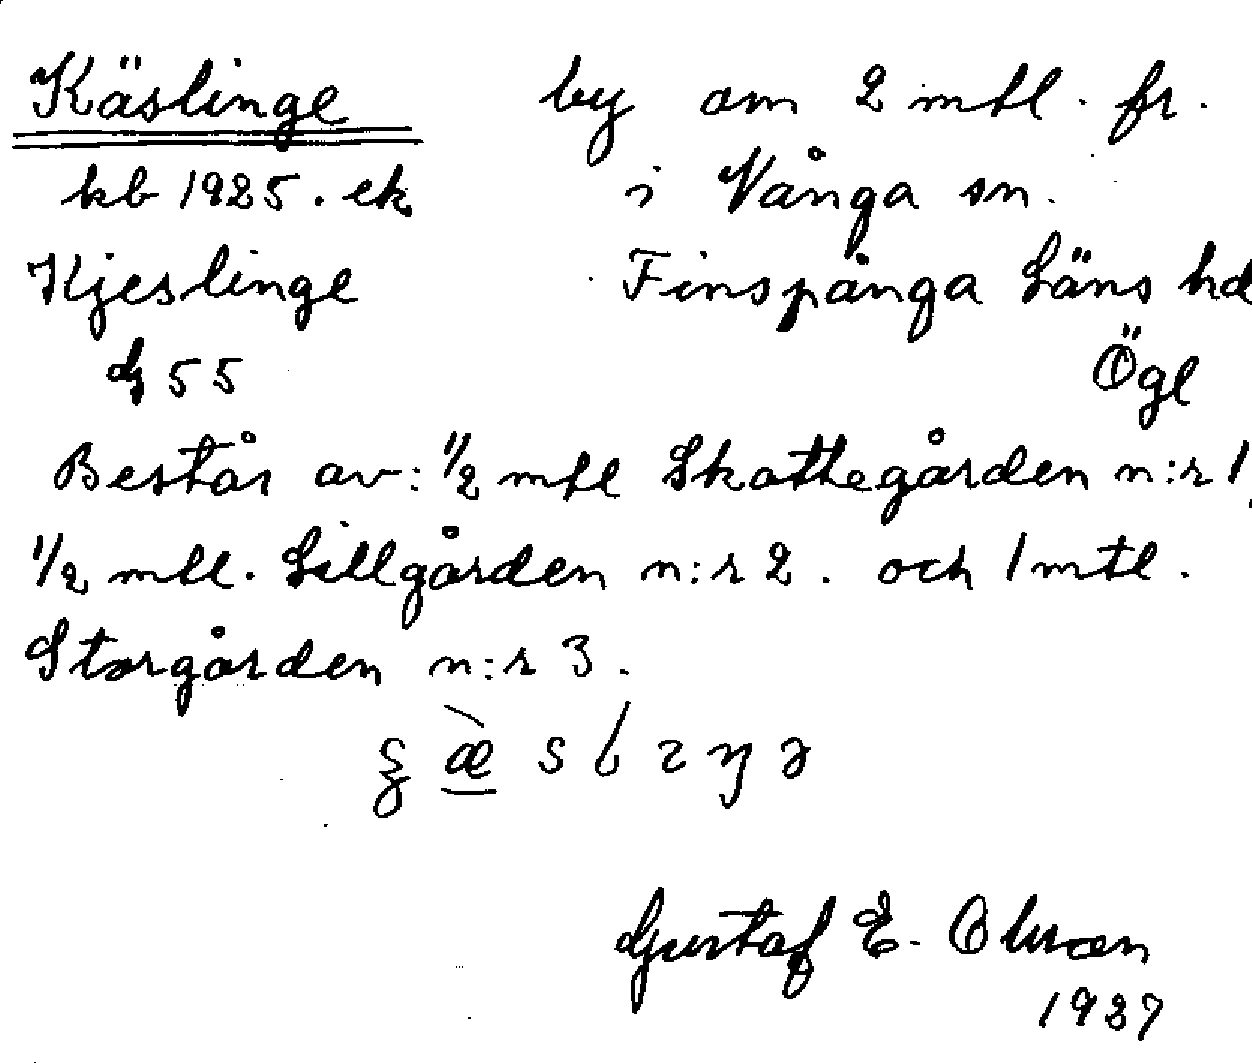 Käslinge by om 2 mtl. fr.
kb 1925. ek. i Vånga sn.
Kjeslinge Finspånga Läns hd
dj 55 Ögl
Består av: 1/2 mtl Skattegården n:r 1,
1/2 mtl. Lillgården n:r 2. och 1 mtl.
Storgården n:r 3.
Gustaf E. Olsson
1937